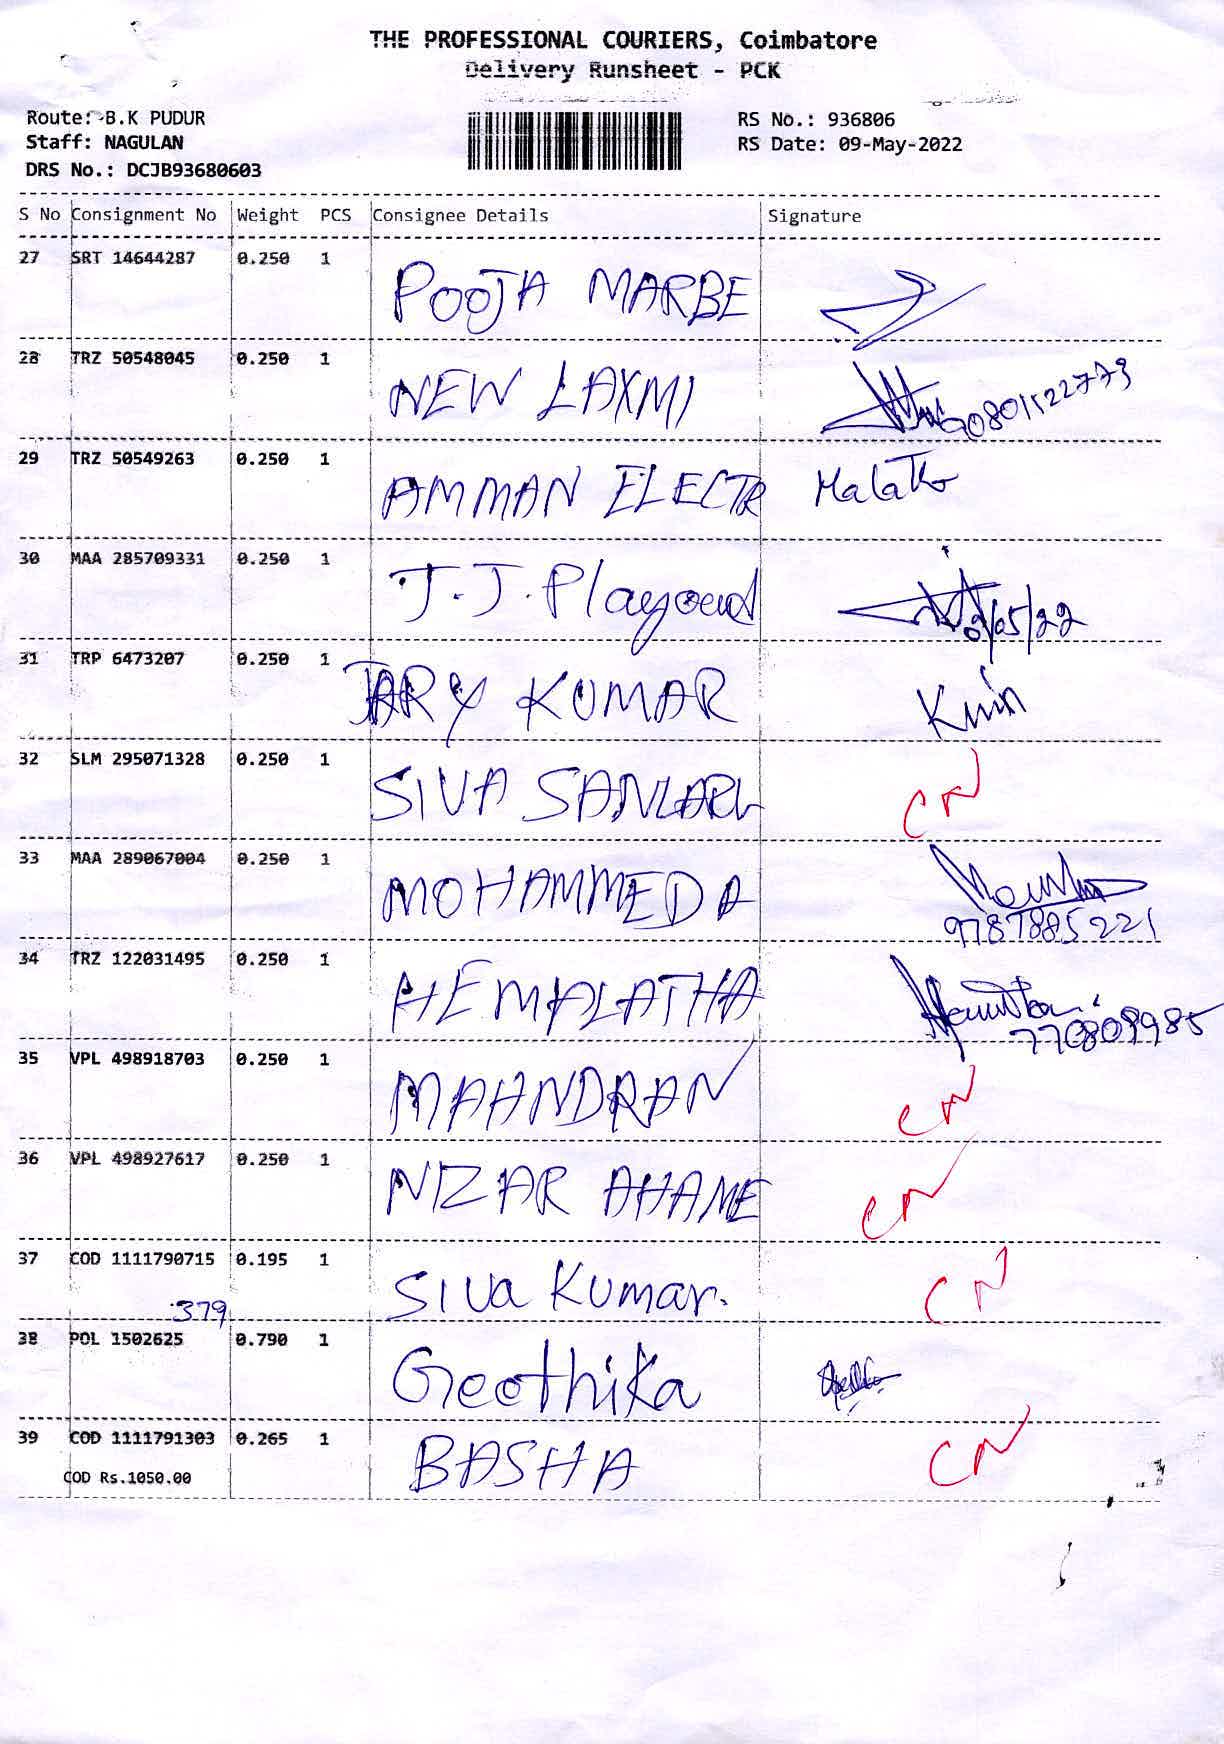 THE PROFESSIONAL COURIERS, Coimbatore
Delivery Runsheet - PCK
Route: B.K PUDUR
Staff: NAGULAN
DRS No.: DCJB93680603
RS No.: 936806
RS Date: 09-May-2022
S No Consignment No Weight PCS Consignee Details Signature
27 SRT 14644287 0.250 1 POOJA MARBE
28 TRZ 50548045 0.250 1 NEW LAXMI 9080112773
29 TRZ 50549263 0.250 1 AMMAN ELECTR
30 MAA 285709331 0.250 1 J.J. 9/05/22
31 TRP 6473207 0.250 1 KUMAR
32 SLM 295071328 0.250 1 SIVA CN
33 MAA 289067004 0.250 1 MOHAMMED A 9787885221
34 TRZ 122031495 0.250 1 HEMALATHA
35 VPL 498918703 0.250 1 MAHNDRAN CN
36 VPL 498927617 0.250 1 NIZAR AHAME CN
37 COD 1111790715 0.195 1 Siva Kumar. CN
379
38 POL 1502625 0.790 1 Geethika
39 COD 1111791303 0.265 1 BASHA CN
COD Rs.1050.00